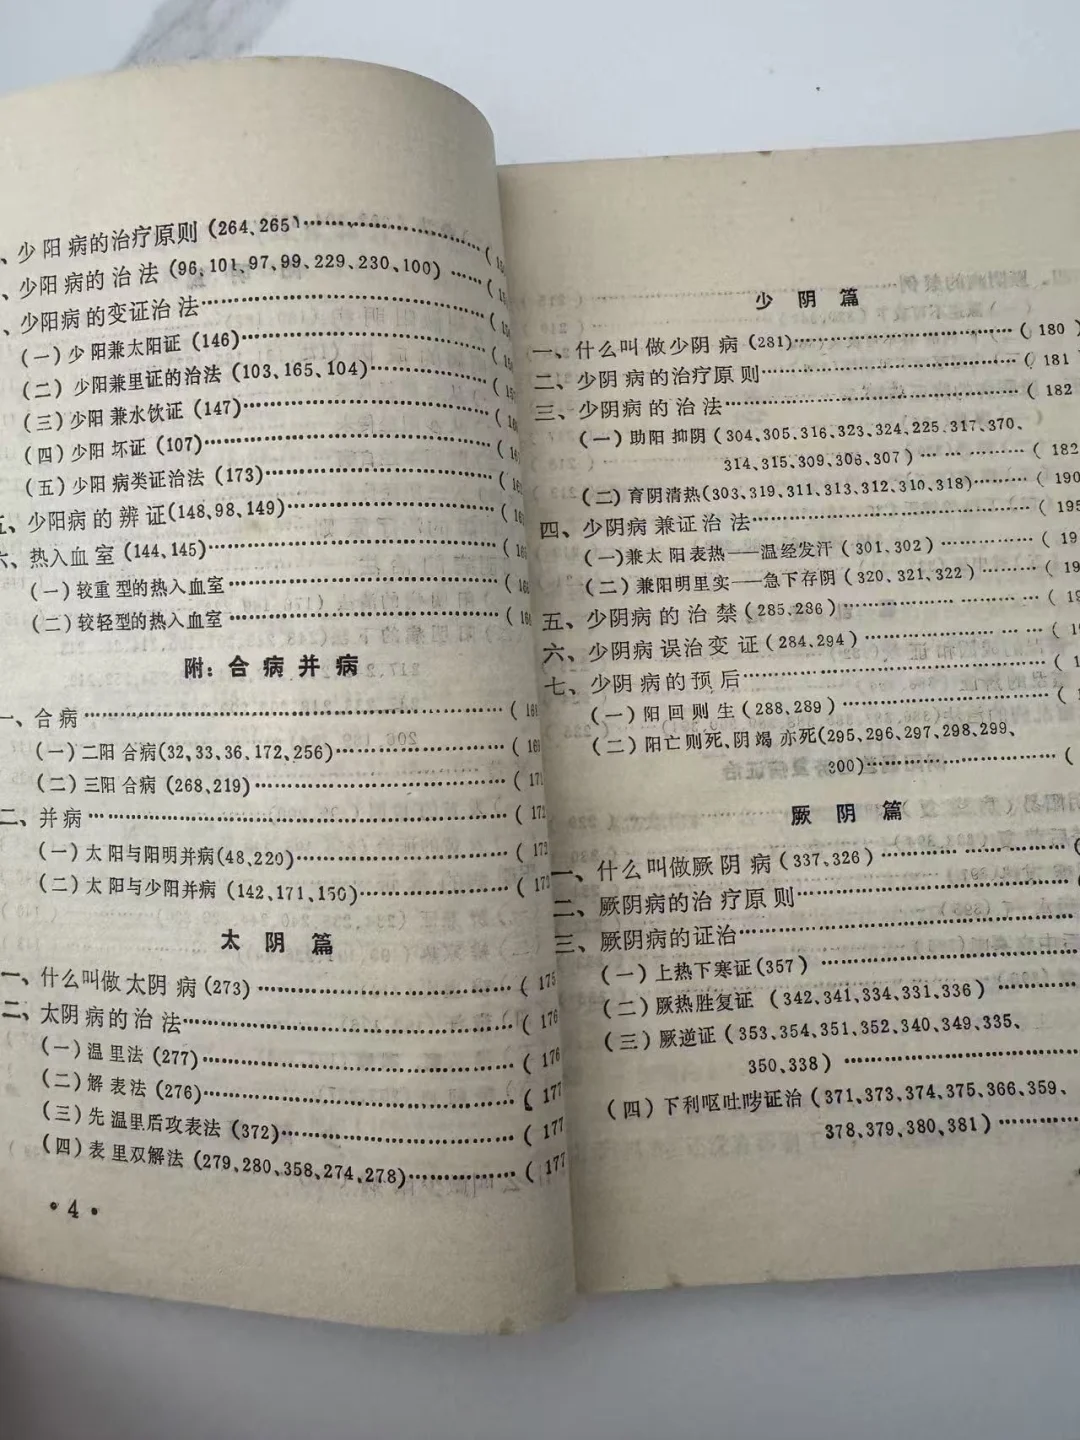 、少阳病的治疗原则(264、265)
、少阳病的治法(96、101、97、99、229、230、100)
、少阳病的变证治法
(一)少阳兼太阳证(146)
(二)少阳兼里证的治法(103、165、104)
(三)少阳兼水饮证(147)
(四)少阳坏证(107)
(五)少阳病类证治法(173)
五、少阳病的辨证(148、98、149)
六、热入血室(144、145)
(一)较重型的热入血室
(二)较轻型的热入血室
附：合病并病
一、合病
(一)二阳合病(32、33、36、172、256)
(二)三阳合病(268、219)
二、并病……(172
(一)太阳与阳明并病(48、220)……(172
(二)太阳与少阳并病(142、171、150)
太阴篇
一、什么叫做太阴病(273)……(175
二、太阴病的治法……(176
(一)温里法(277)……(176
(二)解表法(276)……(177
(三)先温里后攻表法(372)……(177
(四)表里双解法(279、280、358、274、278)……(177
·4·
少阴篇
一、什么叫做少阴病(281)……(180)
二、少阴病的治疗原则……(181
三、少阴病的治法……(182
(一)助阳抑阴(304、305、316、323、324、225、317、370、
314、315、309、306、307)……(182
(二)育阴清热(303、319、311、313、312、310、318)……(190
四、少阴病兼证治法……(195
(一)兼太阳表热——温经发汗(301、302)
(二)兼阳明里实——急下存阴(320、321、322)
五、少阴病的治禁(285、286)
六、少阴病误治变证(284、294)
七、少阴病的预后
(一)阳回则生(288、289)
(二)阳亡则死、阴竭亦死(295、296、297、298、299、
300)
厥阴篇
一、什么叫做厥阴病(337、326)
二、厥阴病的治疗原则
三、厥阴病的证治
(一)上热下寒证(357)
(二)厥热胜复证(342、341、334、331、336)
(三)厥逆证(353、354、351、352、340、349、335、
350、338)
(四)下利呕吐哕证治(371、373、374、375、366、359、
378、379、380、381)